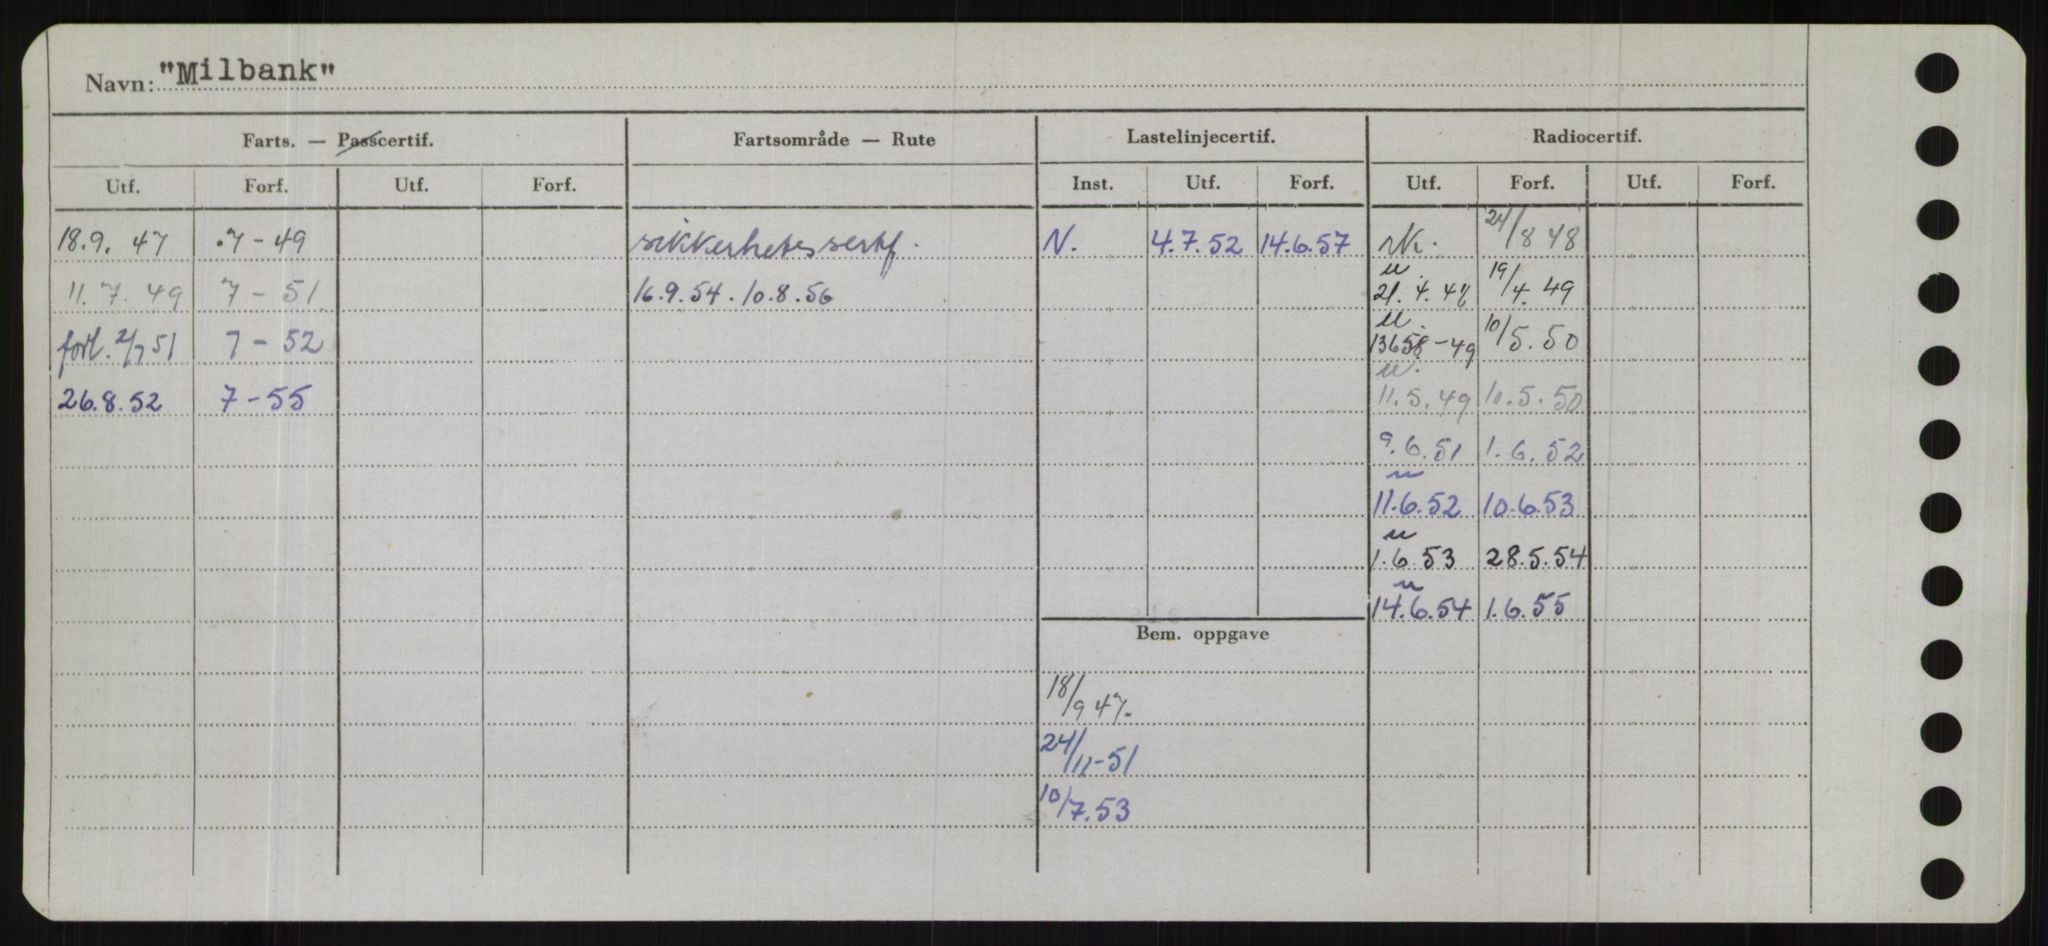 Navn: "Milbank"
Farts. — Passcertif. Fartsområde — Rute Lastelinjecertif. Radiocertif.
Utf. Forf. Utf. Forf. Inst. Utf. Forf. Utf. Forf. Utf. Forf.
18.9. 47 .7 - 49 sikkerhetssertf. N. 4.7.52 14.6.57 24/8 48
11.7.49 7 - 51 16.9.54 - 10.8.56 21.4.48 19/4.49
forl. 2/7 51 7 - 52 13658-49 10/5.50
26.8.52 7 - 55 11.5.49 10.5.50
9.6.51 1.6.52
11.6.52 10.6.53
1.6.53 28.5.54
14.6.54 1.6.55
Bem. oppgave
18/9 47.
24/11-51
10/7.53